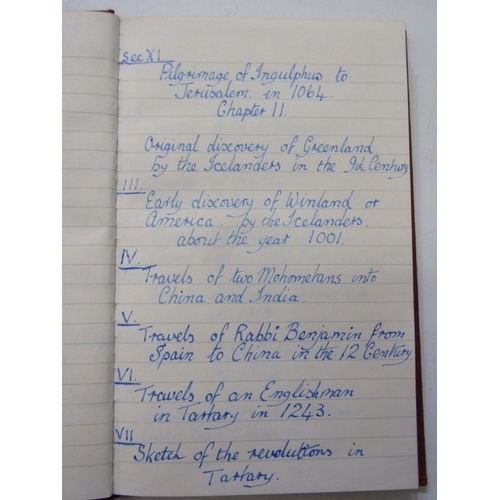 Sec XI.
Pilgrimage of Ingulphus to
Jerusalem in 1064.
Chapter II.
Original discovery of Greenland
by the Icelanders in the 9th Century
III.
Early discovery of Winland or
America. by the Icelanders.
about the year 1001.
IV.
Travels of two Mohometans into
China and India.
V.
Travels of Rabbi Benjamin from
Spain to China in the 12 Century
VI.
Travels of an Englishman
in Tartary in 1243.
VII
Sketch of the revolutions in
Tartary.